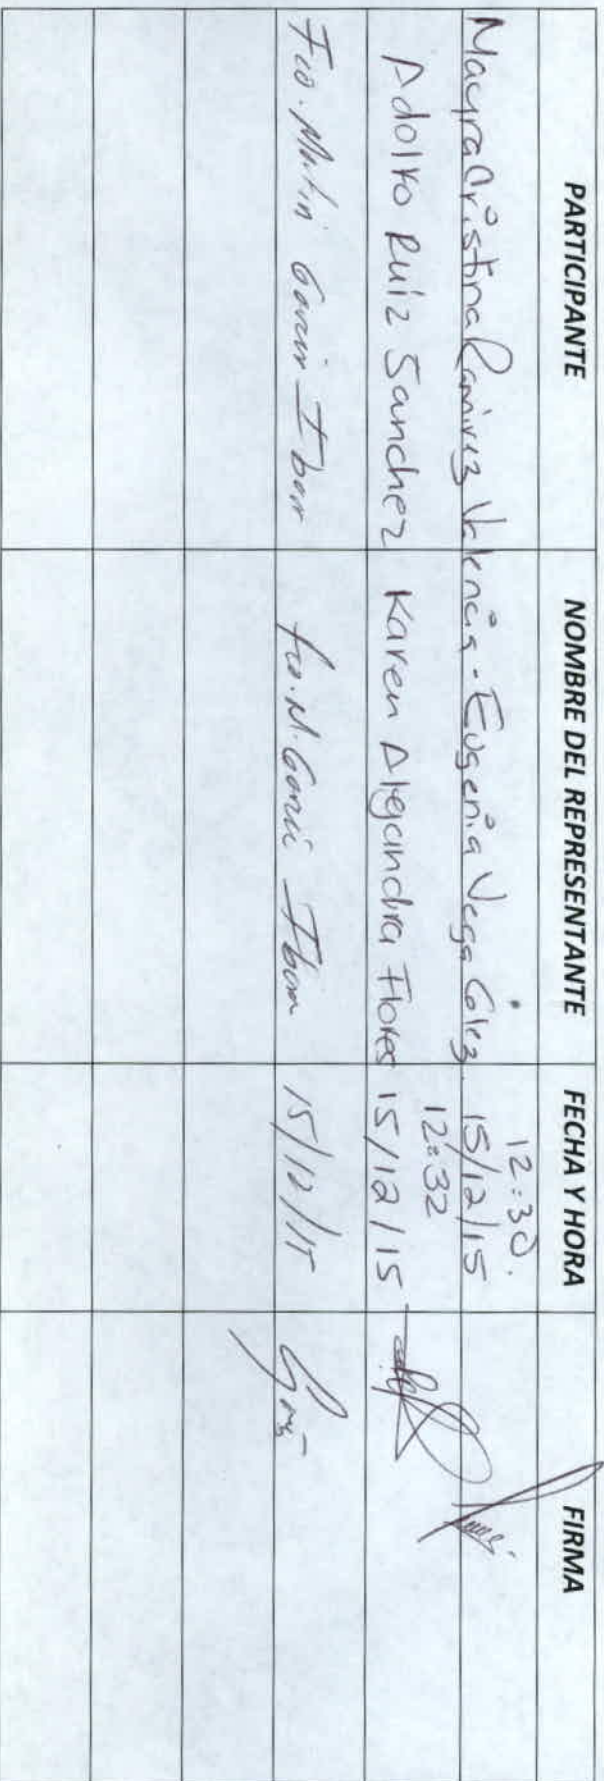 PARTICIPANTE NOMBRE DEL REPRESENTANTE FECHA Y HORA FIRMA
Mayra Cristina Ramirez Valencia - Eugenia Vega 12:30. 15/12/15
Adolfo Ruiz Sanchez Karen Alejandra Flores 12:32 15/12/15
Fco. Martin Garcia Ibarr Fco. M. Garcia 15/12/15